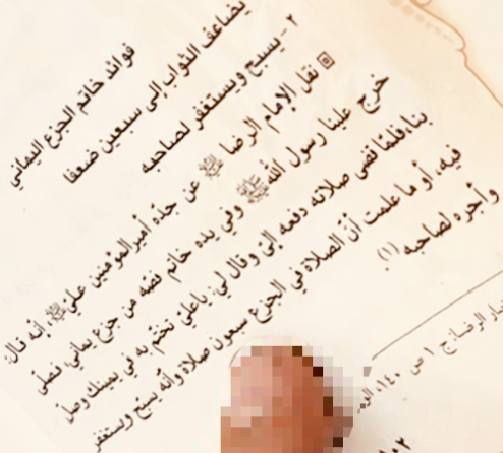 فوائد خاتم الجزع اليماني
يضاعف الثواب إلى سبعين ضعفا
٢ - يسبح ويستغفر لصاحبه
نقل الإمام الرضا عن جدّه أمير المؤمنين عليّ، أنه قال:
خرج علينا رسول الله وفي يده خاتم فصّه من جزع يماني، فصلّى
بنا، فلمّا قضى صلاته دفعه إليّ وقال لي: يا عليّ تختّم به في يمينك وصلّ
فيه، أو ما علمت أنّ الصلاة في الجزع سبعون صلاة وأنّه يسبّح ويستغفر
وأجره لصاحبه(١)
الرضا: ج ١ ص ١٤٠،